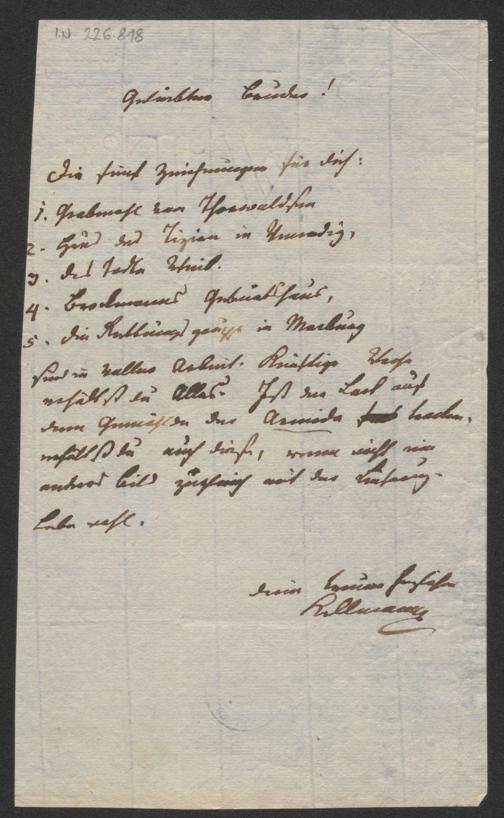 I.N 226.818
Geliebter Bruder!
Die fünf Zeichnungen für dich:
1. Grabmahl von Thorwaldsen
2. Haus des Tizian in Venedig,
3. der todte
4. Brockmanns Geburtshaus,
5. die in Marburg
sind in voller Arbeit. Künftige Woche
erhältst du Alles. Ist der Lack auf
dem Gemählde der Armida trocken,
erhältst du auch dieses, wenn nicht ein
anderes Bild zugleich mit der
Lebe wohl.
dein treuer
Kollmann